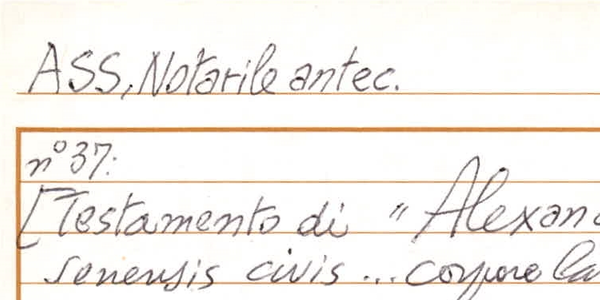 ASS, Notarile antec.
n° 37:
[Testamento di "Alexan
senensis civis ... corpore la